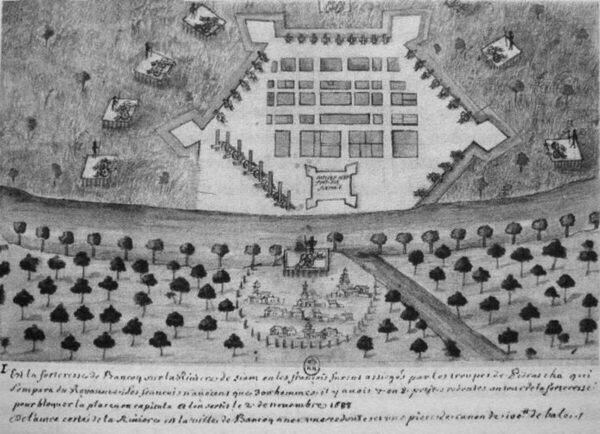 I Est la forteresse de Bancoq sur la Riviere de siam ou les français furent assiegés par les trouppes de Pitracha qui
s'empara du Royaume les françois n'avoient que 200 hommes il y avoit 7 ou 8 petites redoutes autour de la forteresse
pour bloquer la place on capitula et l'on sortit le 2 de novembre 1688
De l'autre costé de la Riviere est la ville de Bancoq avec une redoute et une piece de canon de de bale